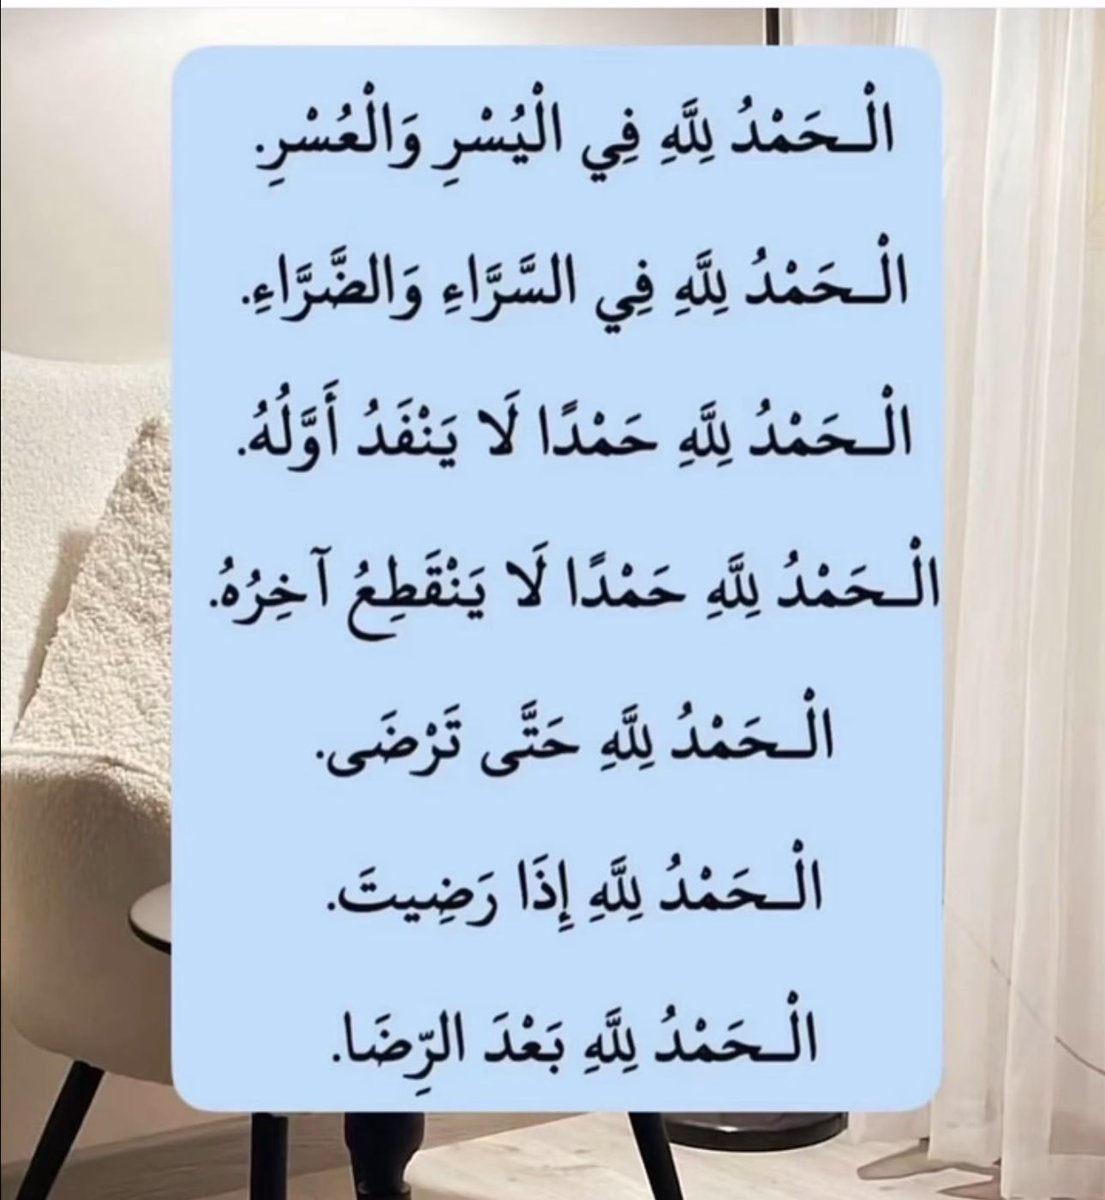 الْـحَمْدُ لِلَّهِ فِي الْيُسْرِ وَالْعُسْرِ.
الْـحَمْدُ لِلَّهِ فِي السَّرَّاءِ وَالضَّرَّاءِ.
الْـحَمْدُ لِلَّهِ حَمْدًا لَا يَنْفَدُ أَوَّلُهُ.
الْـحَمْدُ لِلَّهِ حَمْدًا لَا يَنْقَطِعُ آخِرُهُ.
الْـحَمْدُ لِلَّهِ حَتَّى تَرْضَى.
الْـحَمْدُ لِلَّهِ إِذَا رَضِيتَ.
الْـحَمْدُ لِلَّهِ بَعْدَ الرِّضَا.